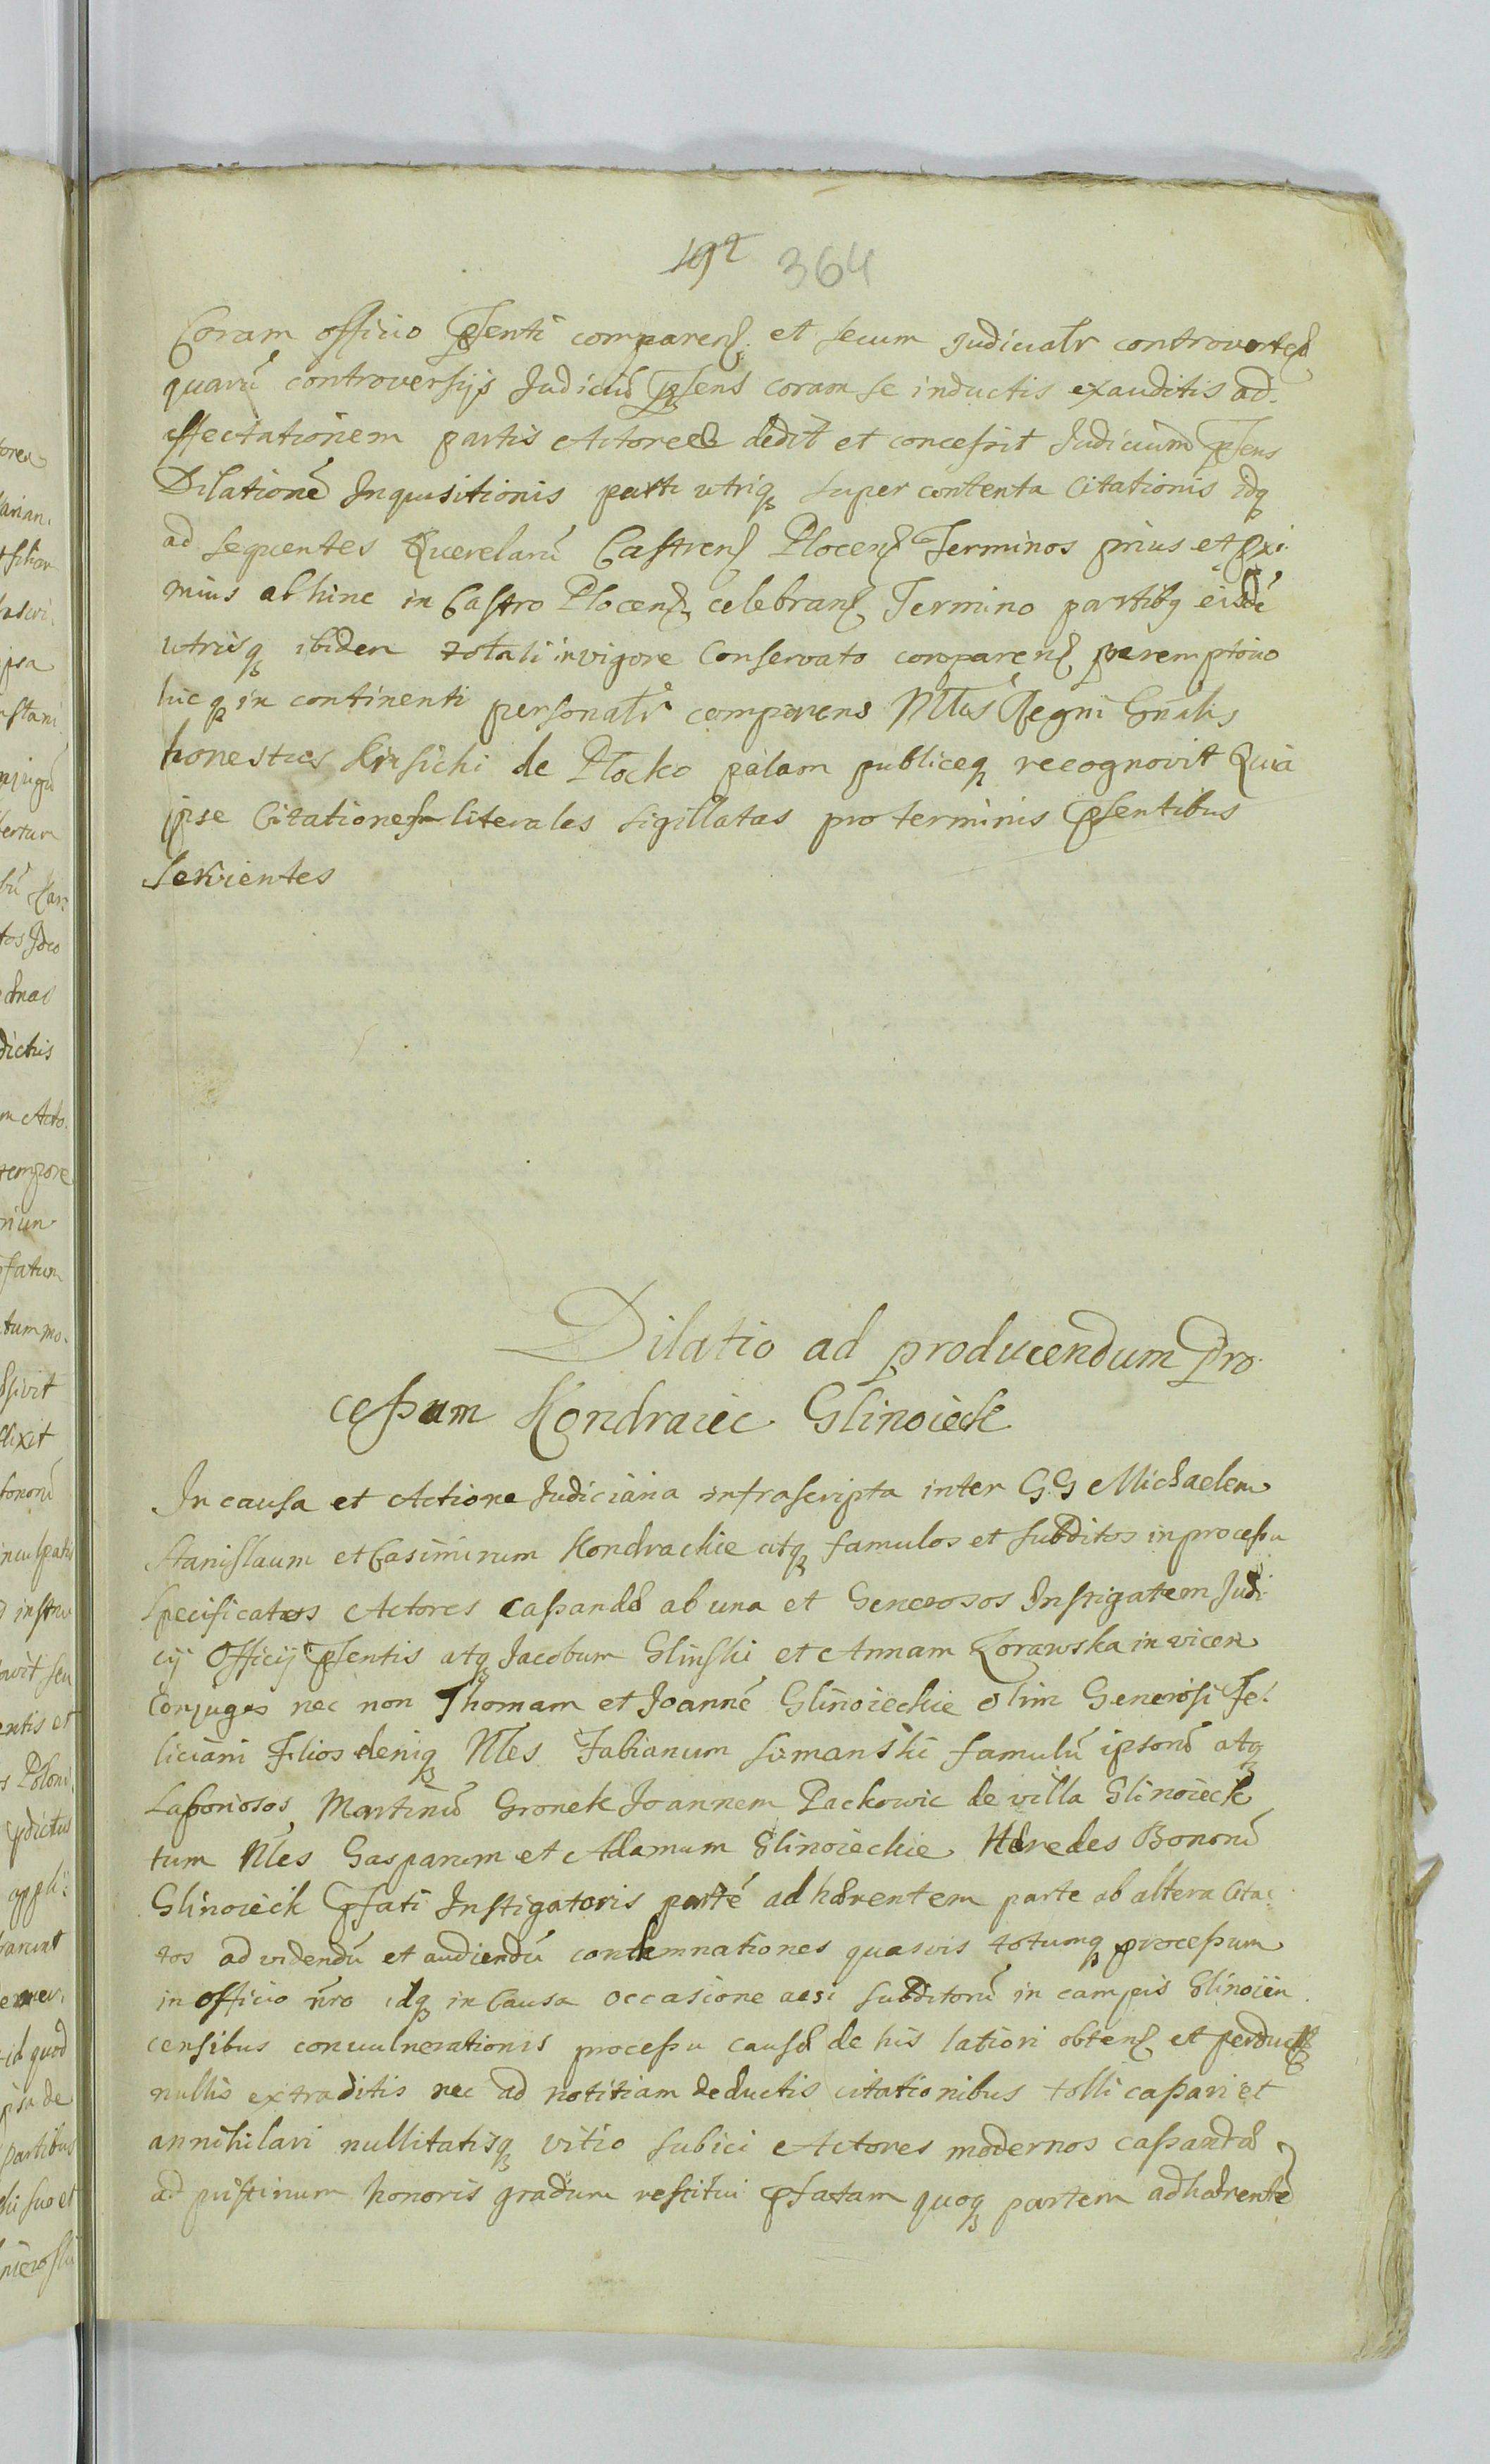 192 364
Coram officio Psenti comparen. et secum judicialr controverten
quarū controversijs Judiciū Psens coram se inductis exauditis ad.
ffectationem partis Actoreæ dedit et concessit Judicium Psens
Dilationē Inquisitionis parti utriq super contenta Citationis idq
ad sequentes Querelarū Castren Plocen Terminos prius et pxi
mius abhinc in Castro Plocen celebran Termino partibq eisdē
utrisq ibidem totali in vigore Conservato comparen peremptorio
hicq in continenti personalr comparens Mlus Regni Gnalis
honestus de Plocko palam publiceq recognovit Quia
ipse Citationes literales sigillatas pro terminis Psentibus
servientes
Dilatio ad producendum Pro
cessum Kondraiec Glinoieck
In causa et Actione Judiciaria infrascripta inter G.G Michaelem
Stanislaum et Casimirum Kondrackie atq famulos et subditos in processu
specificatos Actores cassandæ ab una et Generosos Instigatorem Judi
cij Officij Psentis atq Jacobum Glinski et Annam Zorawska invicem
Conjuges nec non Thomam et Joannē Glinoieckie olim Generosi Fe.
liciani Filios deniq Nles Fabianum Simanski famulū ipsorū atq
Laboriosos Martinū Gronek Joannem Packowic de villa Glinoieck
tum Nles Gasparum et Adamum Glinoieckie Hæredes Bonorū
Glinoieck Pfati Instigatoris partē adhærentem parte ab altera Cita
tos ad videndū et audiendū condemnationes quasvis totumq processum
in officio nro idq in Causa occasione aesi subditorū in campis Glinoiien
censibus convulnerationis processu causæ de his latiori obten et perduct
nullis extraditis nec ad notitiam deductis citationibus tolli cassari et
annihilari nullitatisq vitio subici Actores modernos cassandæ
ad pristinum honoris gradum restitui Pfatam quoq partem adhærentē